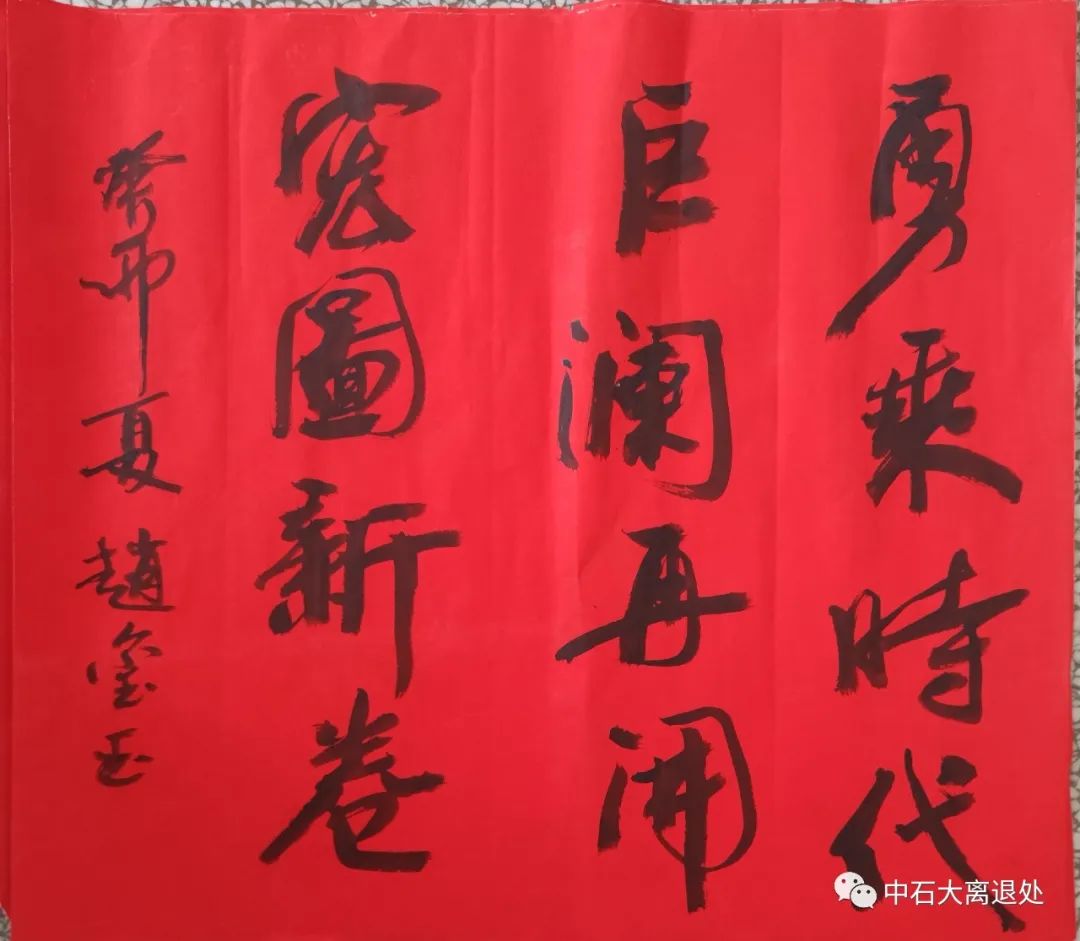 勇乘時代
巨瀾再開
宏圖新卷
癸卯夏 趙金玉
中石大离退处